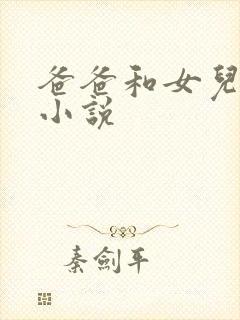 爸爸和女兒
小說
秦劍平